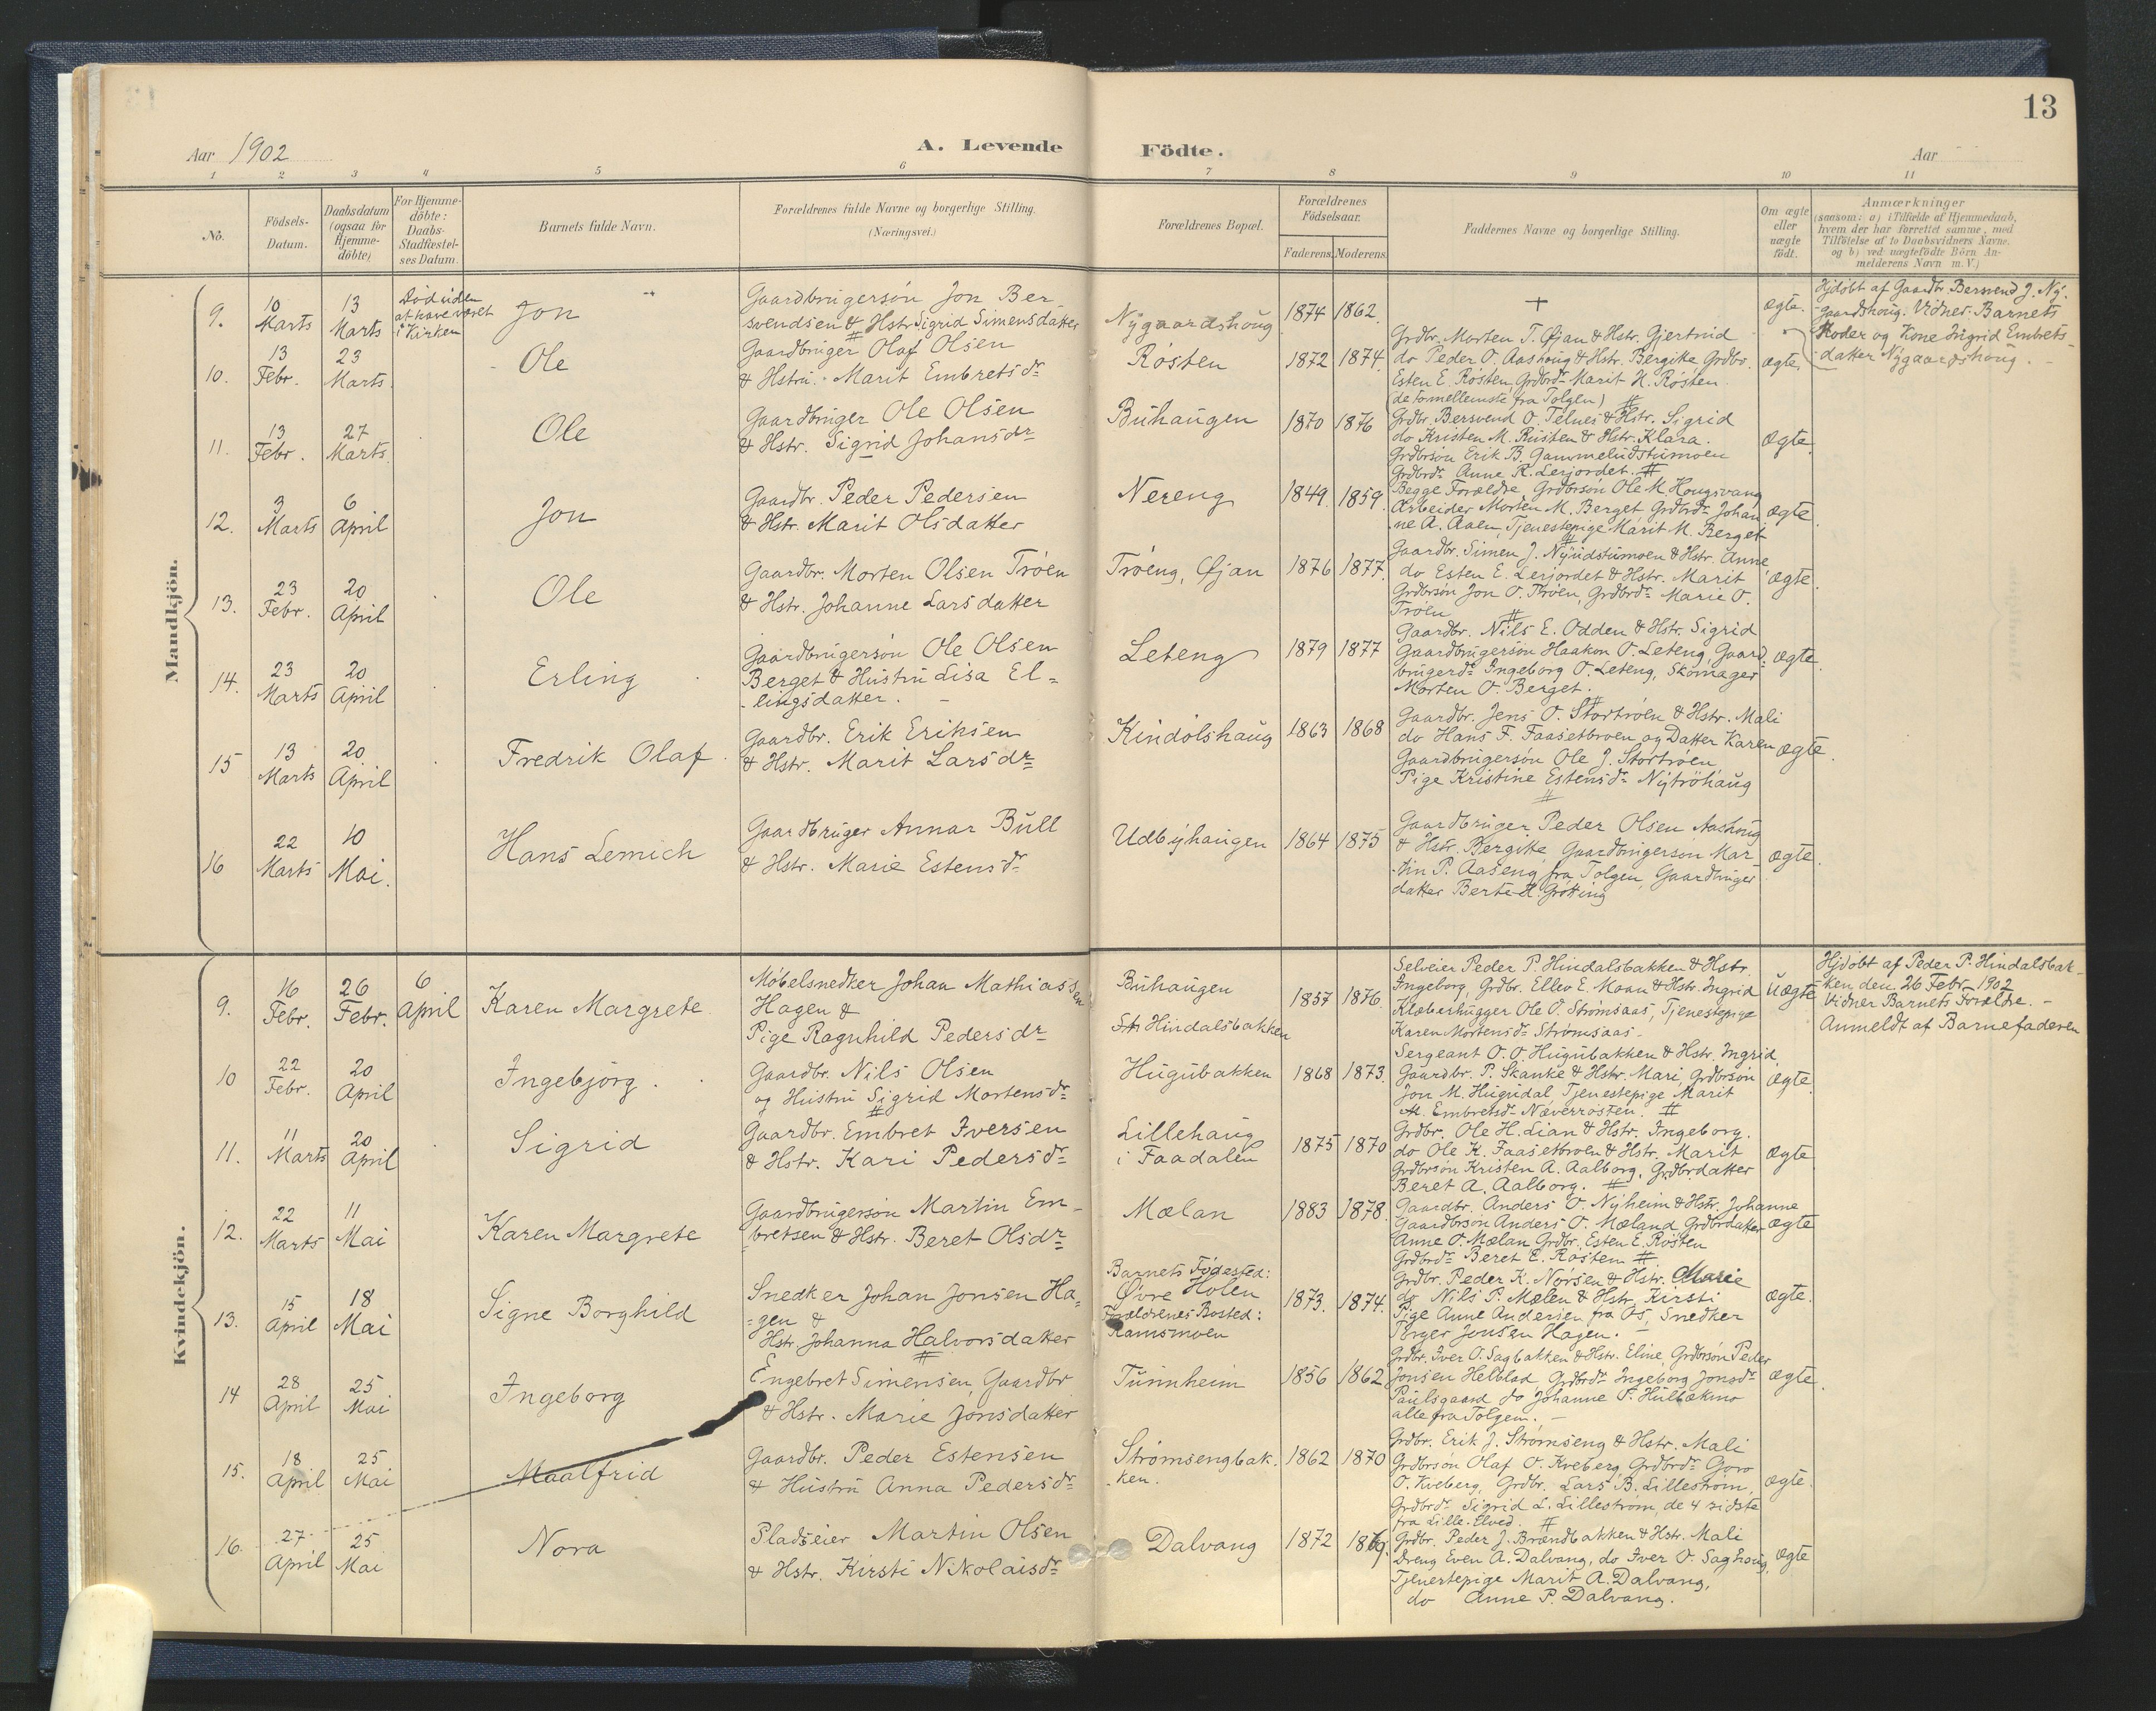 13
Aar 1902
A. Levende Födte.
Aar
1 2 3 4 5 6 7 8 9 10 11
No.
Födsels-Datum.
Daabsdatum (ogsaa for Hjemme-döbte)
For Hjemme-döbte: Daabs-Stadfæstel-ses Datum.
Barnets fulde Navn.
Forældrenes fulde Navne og borgerlige Stilling.
(Næringsvei.)
Forældrenes Bopæl.
Forældrenes Födselsaar.
Faderens. Moderens.
Faddernes Navne og borgerlige Stilling.
Om ægte eller uægte födt.
Anmærkninger
(saasom: a) i Tilfælde af Hjemmedaab,
hvem der har forrettet samme, med
Tilföielse af to Daabsvidners Navne.
og b) ved uægtefödte Börn An-
melderens Navn m. V.)
Mandkjön.
9. 10 Marts 13 Marts
Död uden
at have været
i Kirken
Jon
Gaardbrugersön Jon Ber-
svendsen & Hstr Sigrid Simensdatter
Nygaardshoug
1874 1862.
+
ægte.
Hjdöbt af Gaardbr Bersvend J. Ny-
gaardshoug. Vidner. Barnets
Moder og Kone Ingrid Embrets-
datter Nygaardshoug. -
10. 13 Febr. 23 Marts.
Ole
Gaardbruger Olaf Olsen
& Hstru. Marit Embretsdr
Rösten
1872 1874.
Grdbr. Morten T. Øjan & Hstr. Gjertrud
do Peder O. Aashoug & Hstr. Bergitte Grdbr.
Esten E. Rösten Grdbrdr Marit H. Rösten.
(de to mellemste fra Tolgen) #
ægte.
11. 13 Febr. 27 Marts.
Ole
Gaardbruger Ole Olsen
& Hstr. Sigrid Johansdr
Buhaugen
1870 1876
Grdbr. Bersvend O. Telnes & Hstr. Sigrid
do Kristen M. Rusten & Hstr. Klara.
Grdbrsön Erik B. Gammeludstumoen
Grdbrdr Anne R. Lerjordet. #
ægte.
12. 3 Marts 6 April
Jon
Gaardbr. Peder Pedersen
& Hstr. Marit Olsdatter
Nereng
1849. 1859.
Begge Forældre, Grdbrsön Ole M. Hougsvang
Arbeider Morten M. Berget Grdbrdr Johan
ne A. Aaen, Tjenestepige Marit M. Berget
#
ægte.
13. 23 Febr. 20 April
Ole
Gaardbr. Morten Olsen Tröen
& Hstr. Johanne Larsdatter
Tröeng, Øjan
1876 1877.
Gaardbr. Simen J. Nyudstumoen & Hstr. Anne
do Esten E. Lerjordet & Hstr. Marit
Grdbrsön Jon O. Tröen, Grdbrdr Marie O.
Tröen #
ægte.
14. 23 Marts 20 April
Erling
Gaardbrugersön Ole Olsen
Berget & Hustru Lisa El-
-lingsdatter. -
Leteng
1879 1877
Gaardbr. Nils E. Odden & Hstr. Sigrid
Gaardbrugersön Haakon O. Leteng, Gaard-
brugerdr Ingeborg O. Leteng, Skomager
Morten O. Berget.
#
ægte.
15 13 Marts 20 April
Fredrik Olaf.
Gaardbr. Erik Eriksen
& Hstr. Marit Larsdr
Kindölshaug
1863 1868
Gaardbr. Jens O. Stortröen & Hstr. Mali
do Hans F. Faasetbroen og Datter Karen
Gaardbrugersön Ole J. Stortröen
Pige Kristine Estensdr Nytröhaug
#
ægte.
16 22 Marts 10 Mai.
Hans Lemich
Gaardbruger Annar Bull
& Hstr. Marie Estensdr
Udbyhaugen
1864 1875
Gaardbruger Peder Olsen Aashoug
& Hstr. Bergitte, Gaardbrugersön Mar-
-tin P. Aaseng fra Tolgen, Gaardbruger
datter Berte H. Grötting
ægte.
Kvindekjön.
9. 16 Febr. 26 Febr. 6 April
Karen Margrete
Möbelsnedker Johan Mathiassen
Hagen &
Pige Ragnhild Pedersdr
Buhaugen
Hindalsbakken
1857 1876.
Selveier Peder P. Hindalsbakken & Hstr.
Ingeborg, Grdbr. Ellev E. Moan & Hstr. Ingrid
Klæberhugger Ole O. Strömsaas, Tjenestepige
Karen Mortensdr Strömsaas -
Uægte
Hjdöbt af Peder P. Hindalsbak-
ken den 26 Febr. 1902
Vidner Barnets Forældre. -
Anmeldt af Barnefaderen
10 22 Febr. 20 April
Ingebjörg.
Gaardbr. Nils Olsen
og Hustru Sigrid Mortensdr
#
Hugubakken
1868 1873.
Sergeant O. O. Hugubakken & Hstr. Ingrid,
Gaardbr. P. Skanke & Hstr. Mari, Grdbrsön
Jon M. Hugudal, Tjenestepige Marit
M. Embretsdr Næverrösten. #
ægte.
11. 11 Marts 20 April
Sigrid
Gaardbr. Embret Iversen
& Hstr. Kari Pedersdr
Lillehaug
i Faadalen
1875 1870
Grdbr. Ole H. Lian & Hstr. Ingeborg.
do Ole K. Faasetbroen & Hstr. Marit
Grdbrsön Kristen A. Aalborg, Grdbrdatter
Beret A. Aalborg. #
ægte
12. 22 Marts 11 Mai
Karen Margrete
Gaardbrugersön Martin Em-
bretsen & Hstr. Beret Olsdr
Mælan
1883 1878.
Gaardbr. Anders O. Nyheim & Hstr. Johanne
Gaardbrsön Anders O. Mæland Grdbrdatter
Anne O. Mælan Grdbr. Esten E. Rösten
Grdbrdr Beret E. Rösten #
ægte
13. 15 April 18 Mai
Signe Borghild
Snedker Johan Jonsen Ha-
-gen &
Hstr. Johanna Halvorsdatter
#
Barnets Födested:
Øvre Holen
Forældrenes Bosted:
Ramsmoen
1873. 1874.
Grdbr. Peder K. Norsen & Hstr. Marie
do Nils P. Mælen & Hstr. Kirsti
Pige Anne Andersen fra Os, Snedker
Jonsen Hagen. -
ægte.
14 28 April 25 Mai
Ingeborg
Engebret Simensen, Gaardbr
& Hstr. Marie Jonsdatter
Tunnheim
1856 1862
Grdbr. Iver O. Sagbakken & Hstr. Eline, Grdbrsön Peder
Jonsen Helblad Grdbrdr Ingeborg Jonsdr
Paulsgaard do Johanne P. Hulbækmo
alle fra Tolgen. -
ægte.
15. 18 April 25 Mai
Maalfrid
Gaardbr. Peder Estensen
& Hustru Anna Pedersdr
Strömsengbak-
ken.
1862 1870
Grdbr. Erik J. Strömseng & Hstr. Mali
Grdbrsön Olaf O. Kveberg, Grdbrdr Goro
O. Kveberg, Grdbr. Lars B. Lilleström,
Grdbrdr Sigrid L. Lilleström, de 4 sidste
fra Lille-Elved. #
ægte.
16. 27 April 25 Mai
Nora
Pladseier Martin Olsen
& Hstr. Kirsti Nikolaisdr
Dalvang
1872 1869.
Grdbr. Peder J. Brændbakken & Hstr. Mali
Dreng Even A. Dalvang, do Iver O. Saghoug,
Tjenestepige Marit A. Dalvang,
do Anne P. Dalvang.
ægte